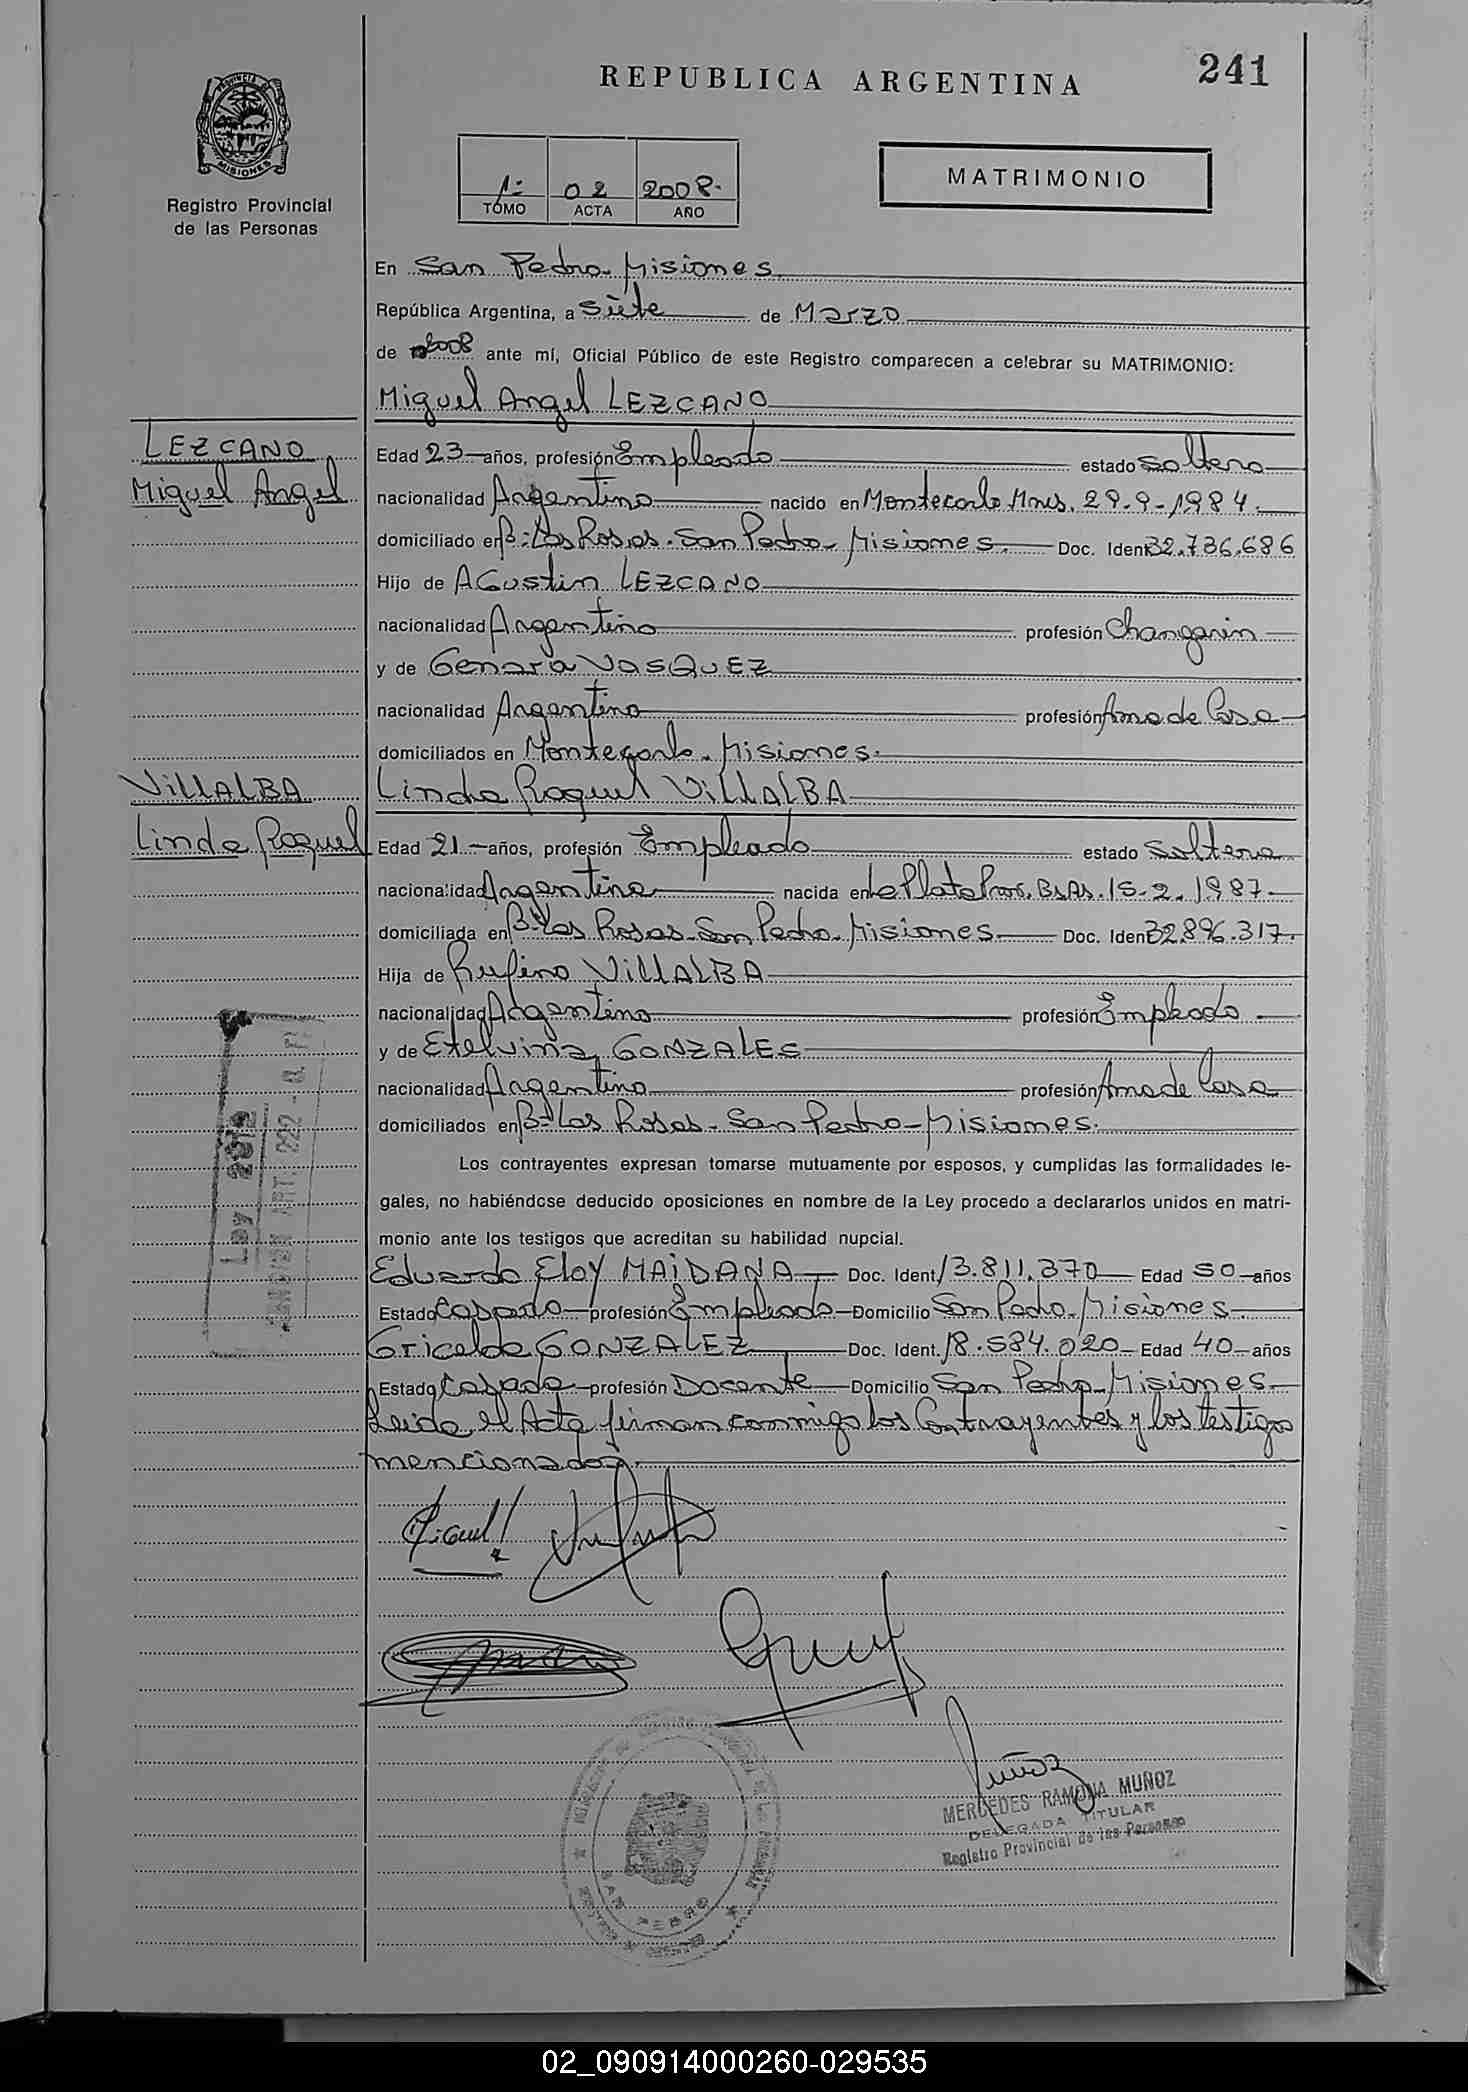 241
REPUBLICA ARGENTINA
PROVINCIA DE
MISIONES
Registro Provincial
de las Personas
1º 02 2008.
TOMO ACTA AÑO
MATRIMONIO
En San Pedro. Misiones
República Argentina, a Siete de Marzo
de 2008 ante mí, Oficial Público de este Registro comparecen a celebrar su MATRIMONIO:
Miguel Angel LEZCANO
LEZCANO
Miguel Angel
Edad 23 años, profesión Empleado estado Soltero
nacionalidad Argentino nacido en Montecarlo Mnes. 29.9.1984.
domiciliado en Bº Las Rosas. San Pedro - Misiones. Doc. Ident 32.736.686
Hijo de Agustin LEZCANO
nacionalidad Argentino profesión Changarin
y de Genara VASQUEZ
nacionalidad Argentina profesión Ama de Casa
domiciliados en Montecarlo. Misiones.
VILLALBA
Linda Raquel
Linda Raquel VILLALBA
Edad 21 años, profesión Empleado estado Soltera
nacionalidad Argentina nacida en La Plata Prov. Bs As. 15.2.1987
domiciliada en Bº Las Rosas. San Pedro. Misiones Doc. Ident 32.896.317.
Hija de Rufino VILLALBA
nacionalidad Argentino profesión Empleado
y de Etelvina GONZALES
nacionalidad Argentina profesión Ama de Casa
domiciliados en Bº Las Rosas. San Pedro - Misiones.
Los contrayentes expresan tomarse mutuamente por esposos, y cumplidas las formalidades le-
gales, no habiéndose deducido oposiciones en nombre de la Ley procedo a declararlos unidos en matri-
monio ante los testigos que acreditan su habilidad nupcial.
Eduardo Eloy MAIDANA Doc. Ident 13.811.370 Edad 50 años
Estado Casado profesión Empleado Domicilio San Pedro. Misiones.
Gricelda GONZALEZ Doc. Ident. 18.584.020 Edad 40 años
Estado Casada profesión Docente Domicilio San Pedro - Misiones
Leida el Acta firman conmigo los Contrayentes y los testigos
mencionados.
Ley
ART. 222
Miguel
Muñoz
MERCEDES RAMONA MUÑOZ
DELEGADA TITULAR
Registro Provincial de las Personas
SAN PEDRO
02_090914000260-029535